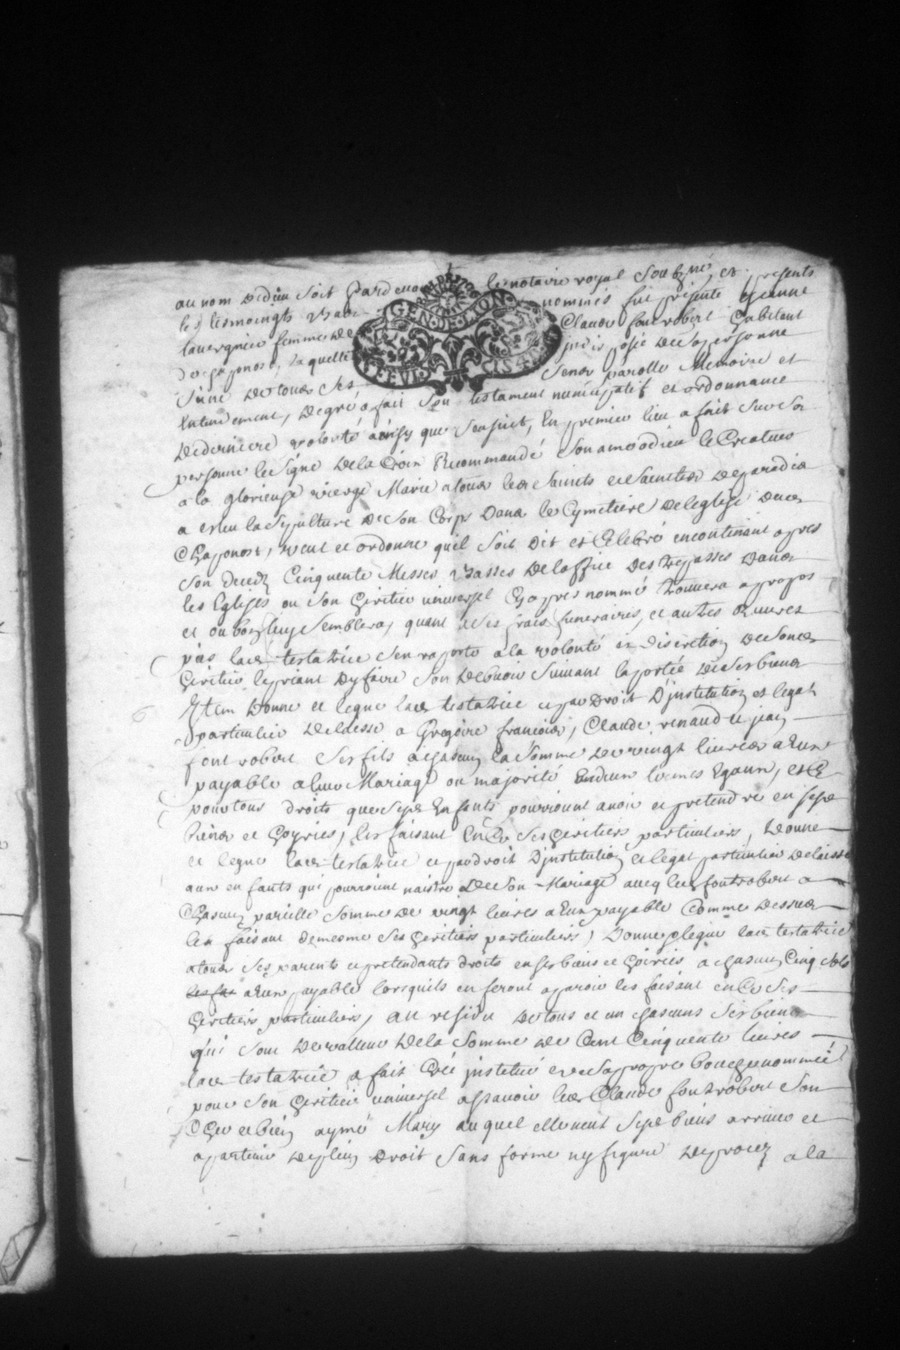 au nom de dieu soit Pardevant le notaire royal soubzné et presents
les tesmoingts nommés fut présente Jeanne
lavergnée femme de Claude fontrobert habitant
de chaponost, laquelle de sa personne
saine de tous ses sens parolle Memoire et
Entendement, degré a fait son testament nuncupatif et ordonnance
de derniere volonté ainsy que sensuit, En premier lieu a fait sur sa
personne le signe de la Croix Recommandé son ame a dieu le Createur
a la glorieuse vierge Marie a tous les saints et saintes de paradis
a esleu la sepulture de son Corps Dans le Cymetiere de leglise dud
Chaponost, veut et ordonne quil soit dit et Celebré encontinant apres
son deced Cinquente Messes Basses de loffice des trepassés dans
les Eglises ou son heritier universel cy apres nommé trouvera a propos
et ou bon luy semblera, quant a ses frais funeraires, et autres oeuvres
pies lad testatrice sen raporte a la volonté et discretion de sond
heritier le priant dy faire son debvoir suivant la portée de ses biens
Item Donne et legue lad testatrice et par Droit Dinstitution et legat
particulier delaisse a Gregoire francois, Claude, renaud et jean
font robert ses fils a chascun la somme de vingt livres a Eux
payable a leur Mariage ou majorité Egaux, et Ce
pour tous droits que sesd Enfants pourroient avoir et pretendre en sesd
biens et hoyries, les faisant En Ce ses heritiers particuliers, Donne
et legue lad testatrice et par droit Dinstitution et legat particulier delaisse
aux enfants qui pourroient naistre de son Mariage avec led fontrobert a
Chascun pareille somme de vingt livres a Eux payable Comme dessus
les faisant de mesme ses heritiers particuliers, Donne et legue lad testatrice
a tous ses parents et pretendants droits en ses biens et hoiries a chascun Cinq sols
a Eux payable lorsquils en feront aparoir les faisant en Ce ses
heritiers particuliers, au residu de tous et un chascuns ses biens
qui sont de valleur de la somme de Cent Cinquente livres
lad testatrice a fait Créé institué et de sa propre bouche nommé
pour son heritier universel a scavoir led Claude fontrobert son
Cher et bien aymé Mary auquel elle veut sesd biens arriver et
apartenir de plein Droit sans forme ny figure de proces a la
GEN·DE·LION